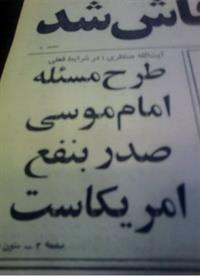 فاش شد
آیت‌الله منتظری: در شرایط فعلی
طرح مسئله
امام موسی
صدر بنفع
امریکاست
صفحه ۲ ــ ستون